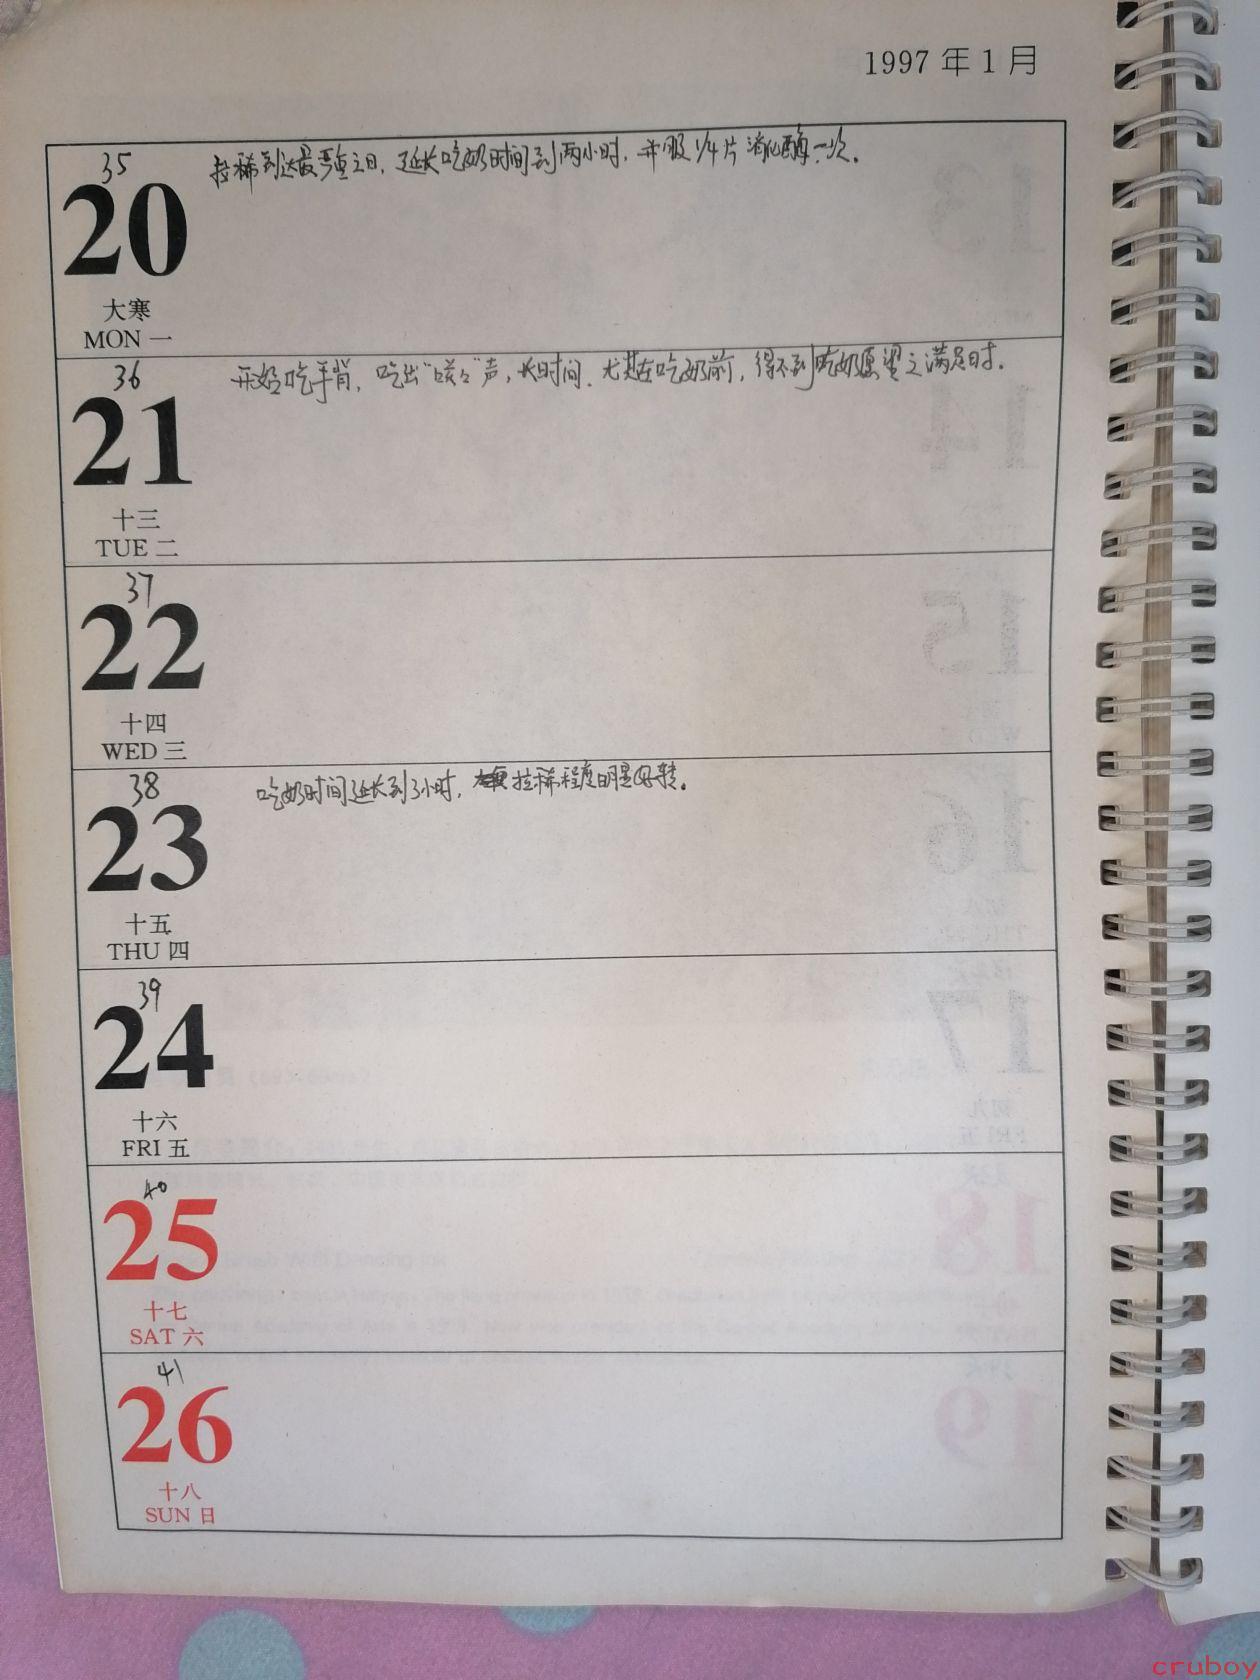 1997 年 1 月
35
拉稀到达最严重之日，延长吃奶时间到两小时，并服 1/4 片 消化酶一次。
20
大寒
MON 一
36
开始吃手背，吃出“咳々”声，长时间，尤其在吃奶前，得不到吃奶愿望之满足时。
21
十三
TUE 二
37
22
十四
WED 三
38
吃奶时间延长到3小时，拉稀程度明显好转。
23
十五
THU 四
39
24
十六
FRI 五
40
25
十七
SAT 六
41
26
十八
SUN 日
cruboy